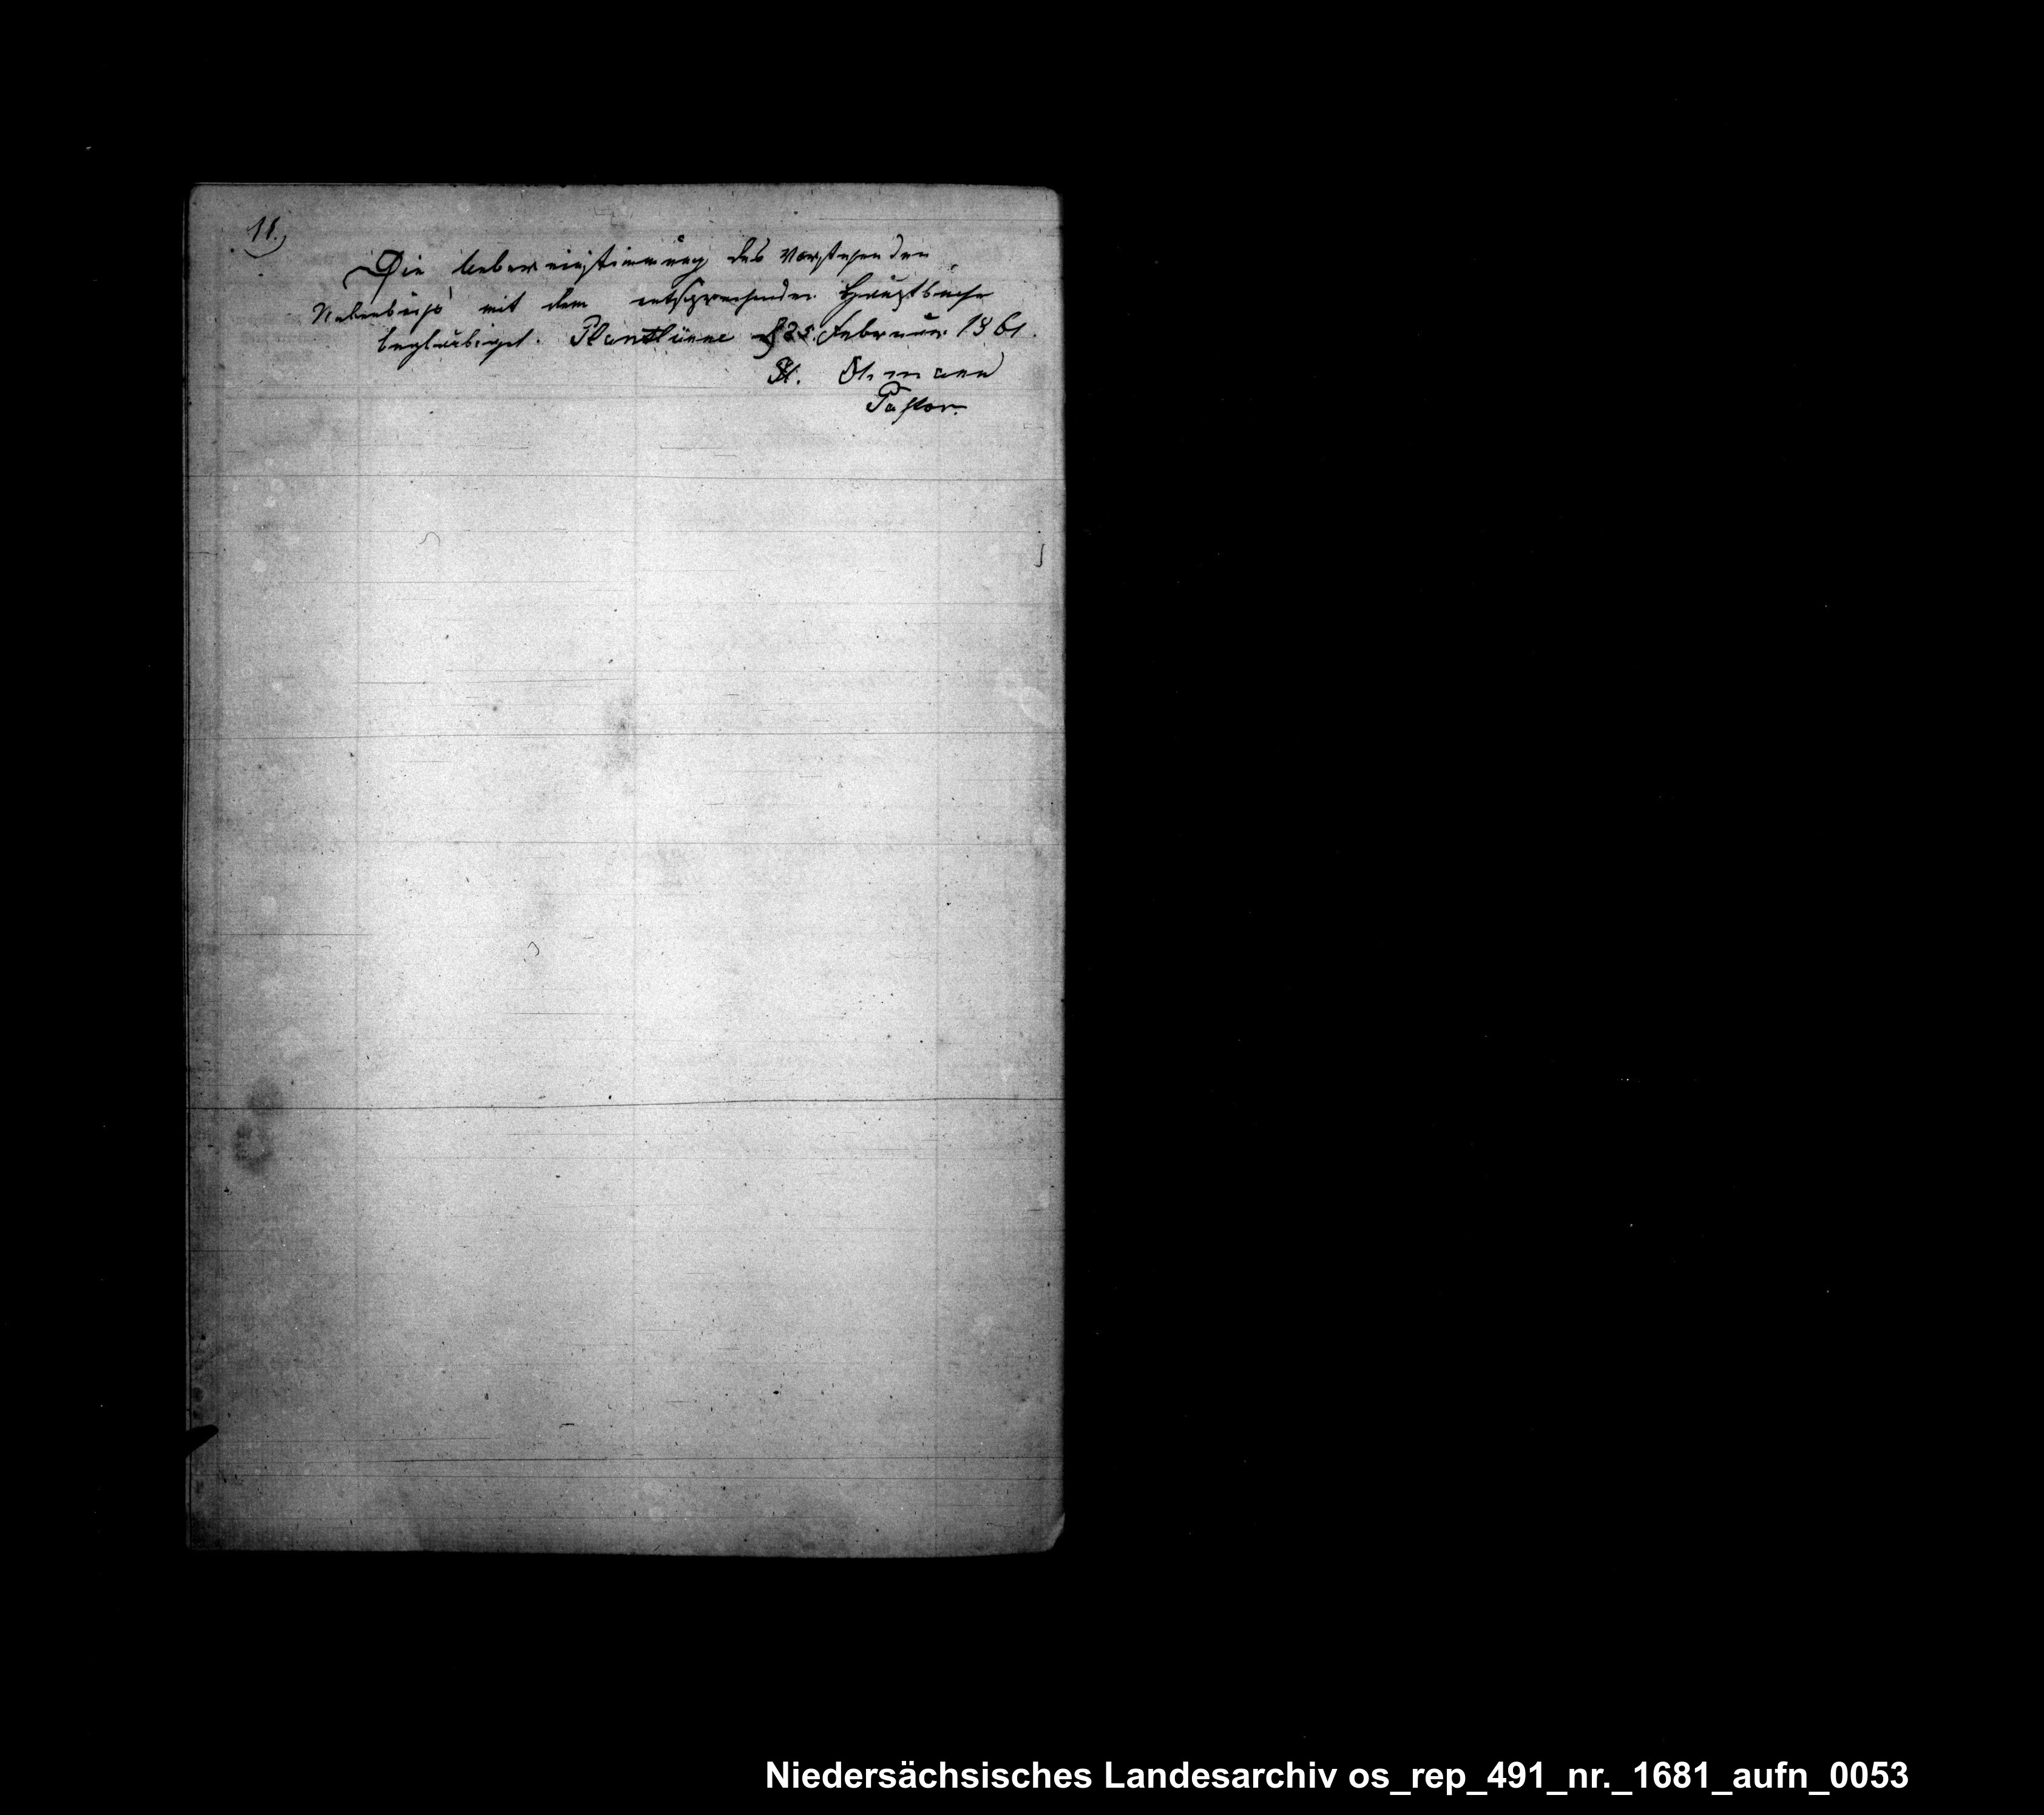 11.)
Die Uebereinstimmung des Vorstehenden
Nebenbuchs mit dem entsprechenden Hauptbuche
beglaubiget. Plantlünne d 25. Februar 1861.
Ohmann
Pastor.
Niedersächsisches Landesarchiv os_rep_491_nr._1681_aufn_0053